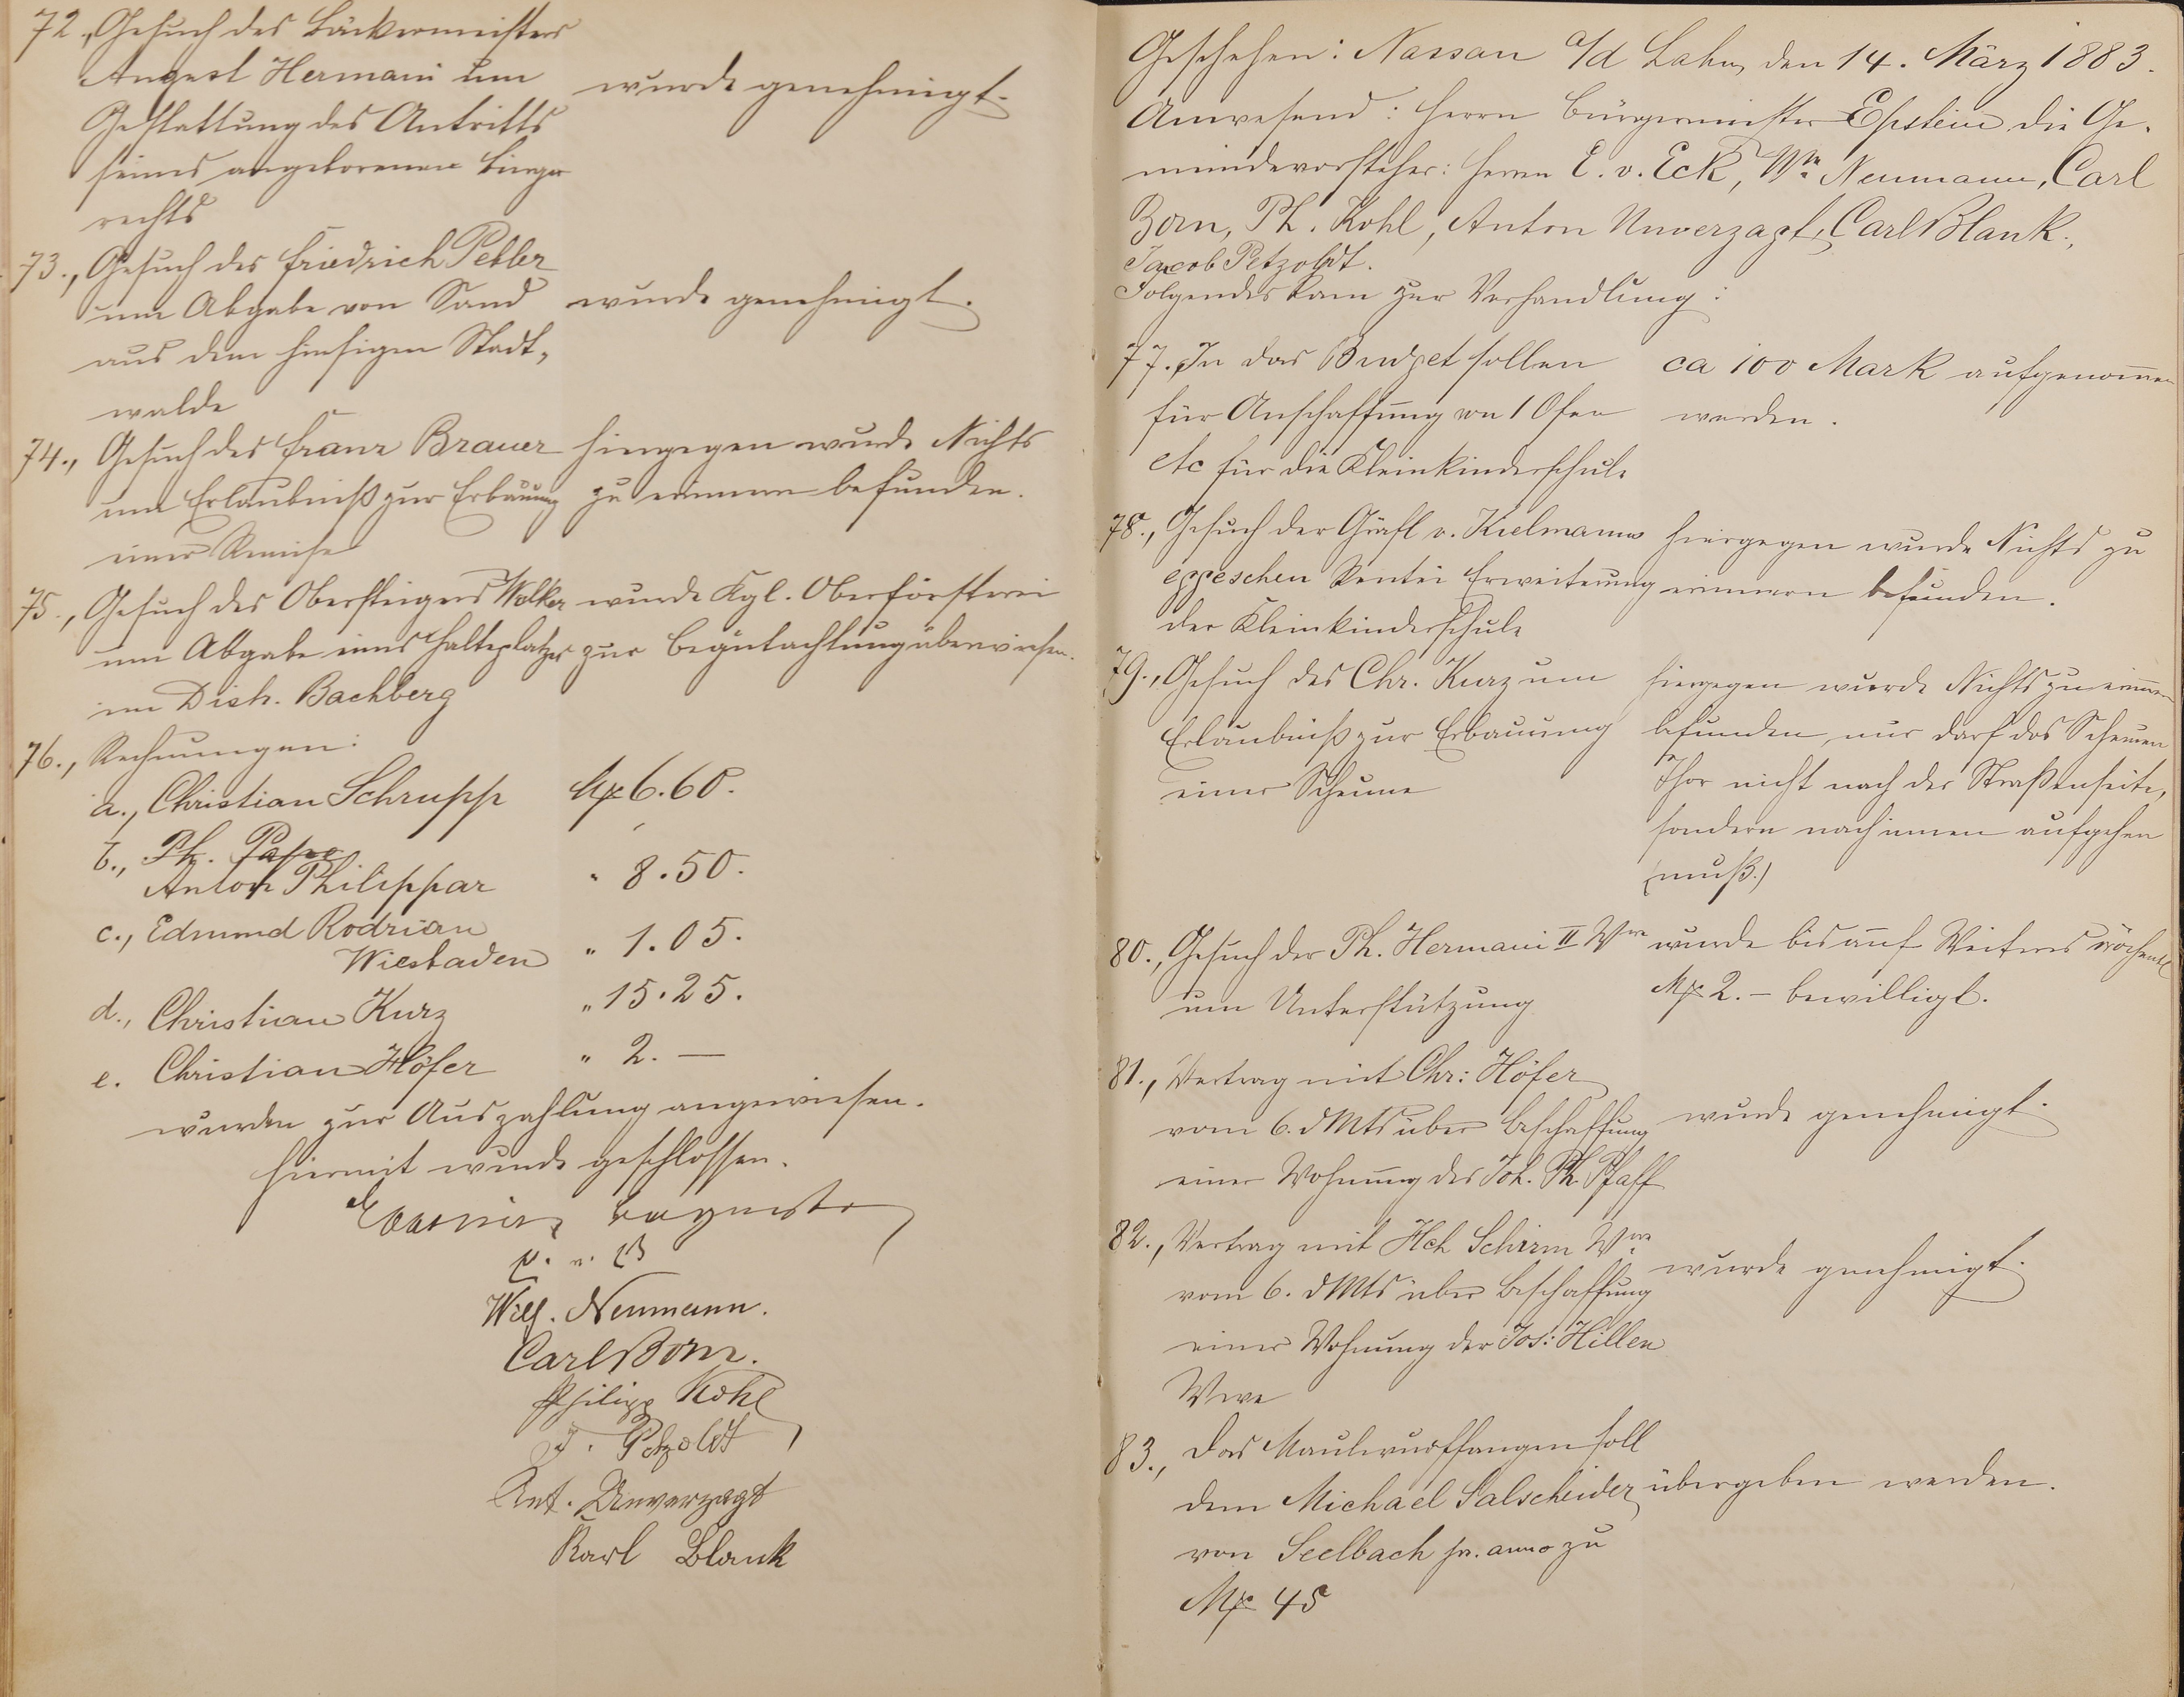 72., Gesuch des Bäckermeisters
August Hermani um
Gestattung des Antritts
seines angeborenen Bürger
rechts
wurde genehmigt.
73., Gesuch des Friedrich Pebler
um Abgabe von Sand
aus dem hiesigen Stadt-
walde
wurde genehmigt.
74., Gesuch des Franz Brauer
um Erlaubniß zur Erbauung
einer Remise
hiergegen wurde Nichts
zu erinnern befunden.
75., Gesuch des Obersteigers Wolker
um Abgabe eines Halteplatzes
im Distr. Bachberg
wurde Kgl. Oberförsterei
zur Begutachtung überwiesen.
76., Rechnungen:
a., Christian Schrupp Mk 6.60.
b., Ph. Pape
Anton Philippar " 8.50.
c., Edmund Rodrian
Wiesbaden " 1.05.
d., Christian Kurz " 15.25.
e. Christian Höfer " 2. —
wurden zur Auszahlung angewiesen.
Hiermit wurde geschlossen.
E. v. E
Wilh. Neumann.
Carl Born.
Philipp Kohl
J. Petzoldt
Ant. Unverzagt
Karl Blank
Geschehen: Nassau a/d Lahn, den 14. März 1883.
Anwesend: Herrn Bürgermeister Epstein die Ge-
meindevorsteher: Herrn E. v. Eck, Wm Neumann, Carl
Born, Ph. Kohl, Anton Unverzagt, Carl Blank.,
Jacob Petzoldt.
Folgendes kam zur Verhandlung:
77., In das Budget sollen
für Anschaffung von 1 Ofen
etc für die Kleinkinderschule
ca 100 Mark aufgenommen
werden.
78., Gesuch der Gräfl v. Kielmanns
eggeschen Rentei Erweiterung
der Kleinkinderschule
hiergegen wurde Nichts zu
erinnern befunden.
79., Gesuch des Chr. Kurz um
Erlaubniß zur Erbauung
einer Scheune
hiergegen wurde Nichts zu erinnern
befunden, nur darf das Scheunen
Thor nicht nach der Straßenseite,
sondern nach innen aufgehen
(muß.)
80., Gesuch der Ph. Hermani II Wwe
um Unterstützung
wurde bis auf Weiteres wöchentl
Mk 2. — bewilligt.
81., Vertrag mit Chr: Höfer
vom 6. d Mts über Beschaffung
einer Wohnung des Joh. Ph. Pfaff
wurde genehmigt.
82., Vertrag mit Hch Schirm Wwe
vom 6. d Mts über Beschaffung
einer Wohnung der Jos: Hillen
Wwe
wurde genehmigt.
83., Das Maulwurffangen soll
dem Michael Salscheider
von Seelbach pr. anno zu
Mk 45
übergeben werden.